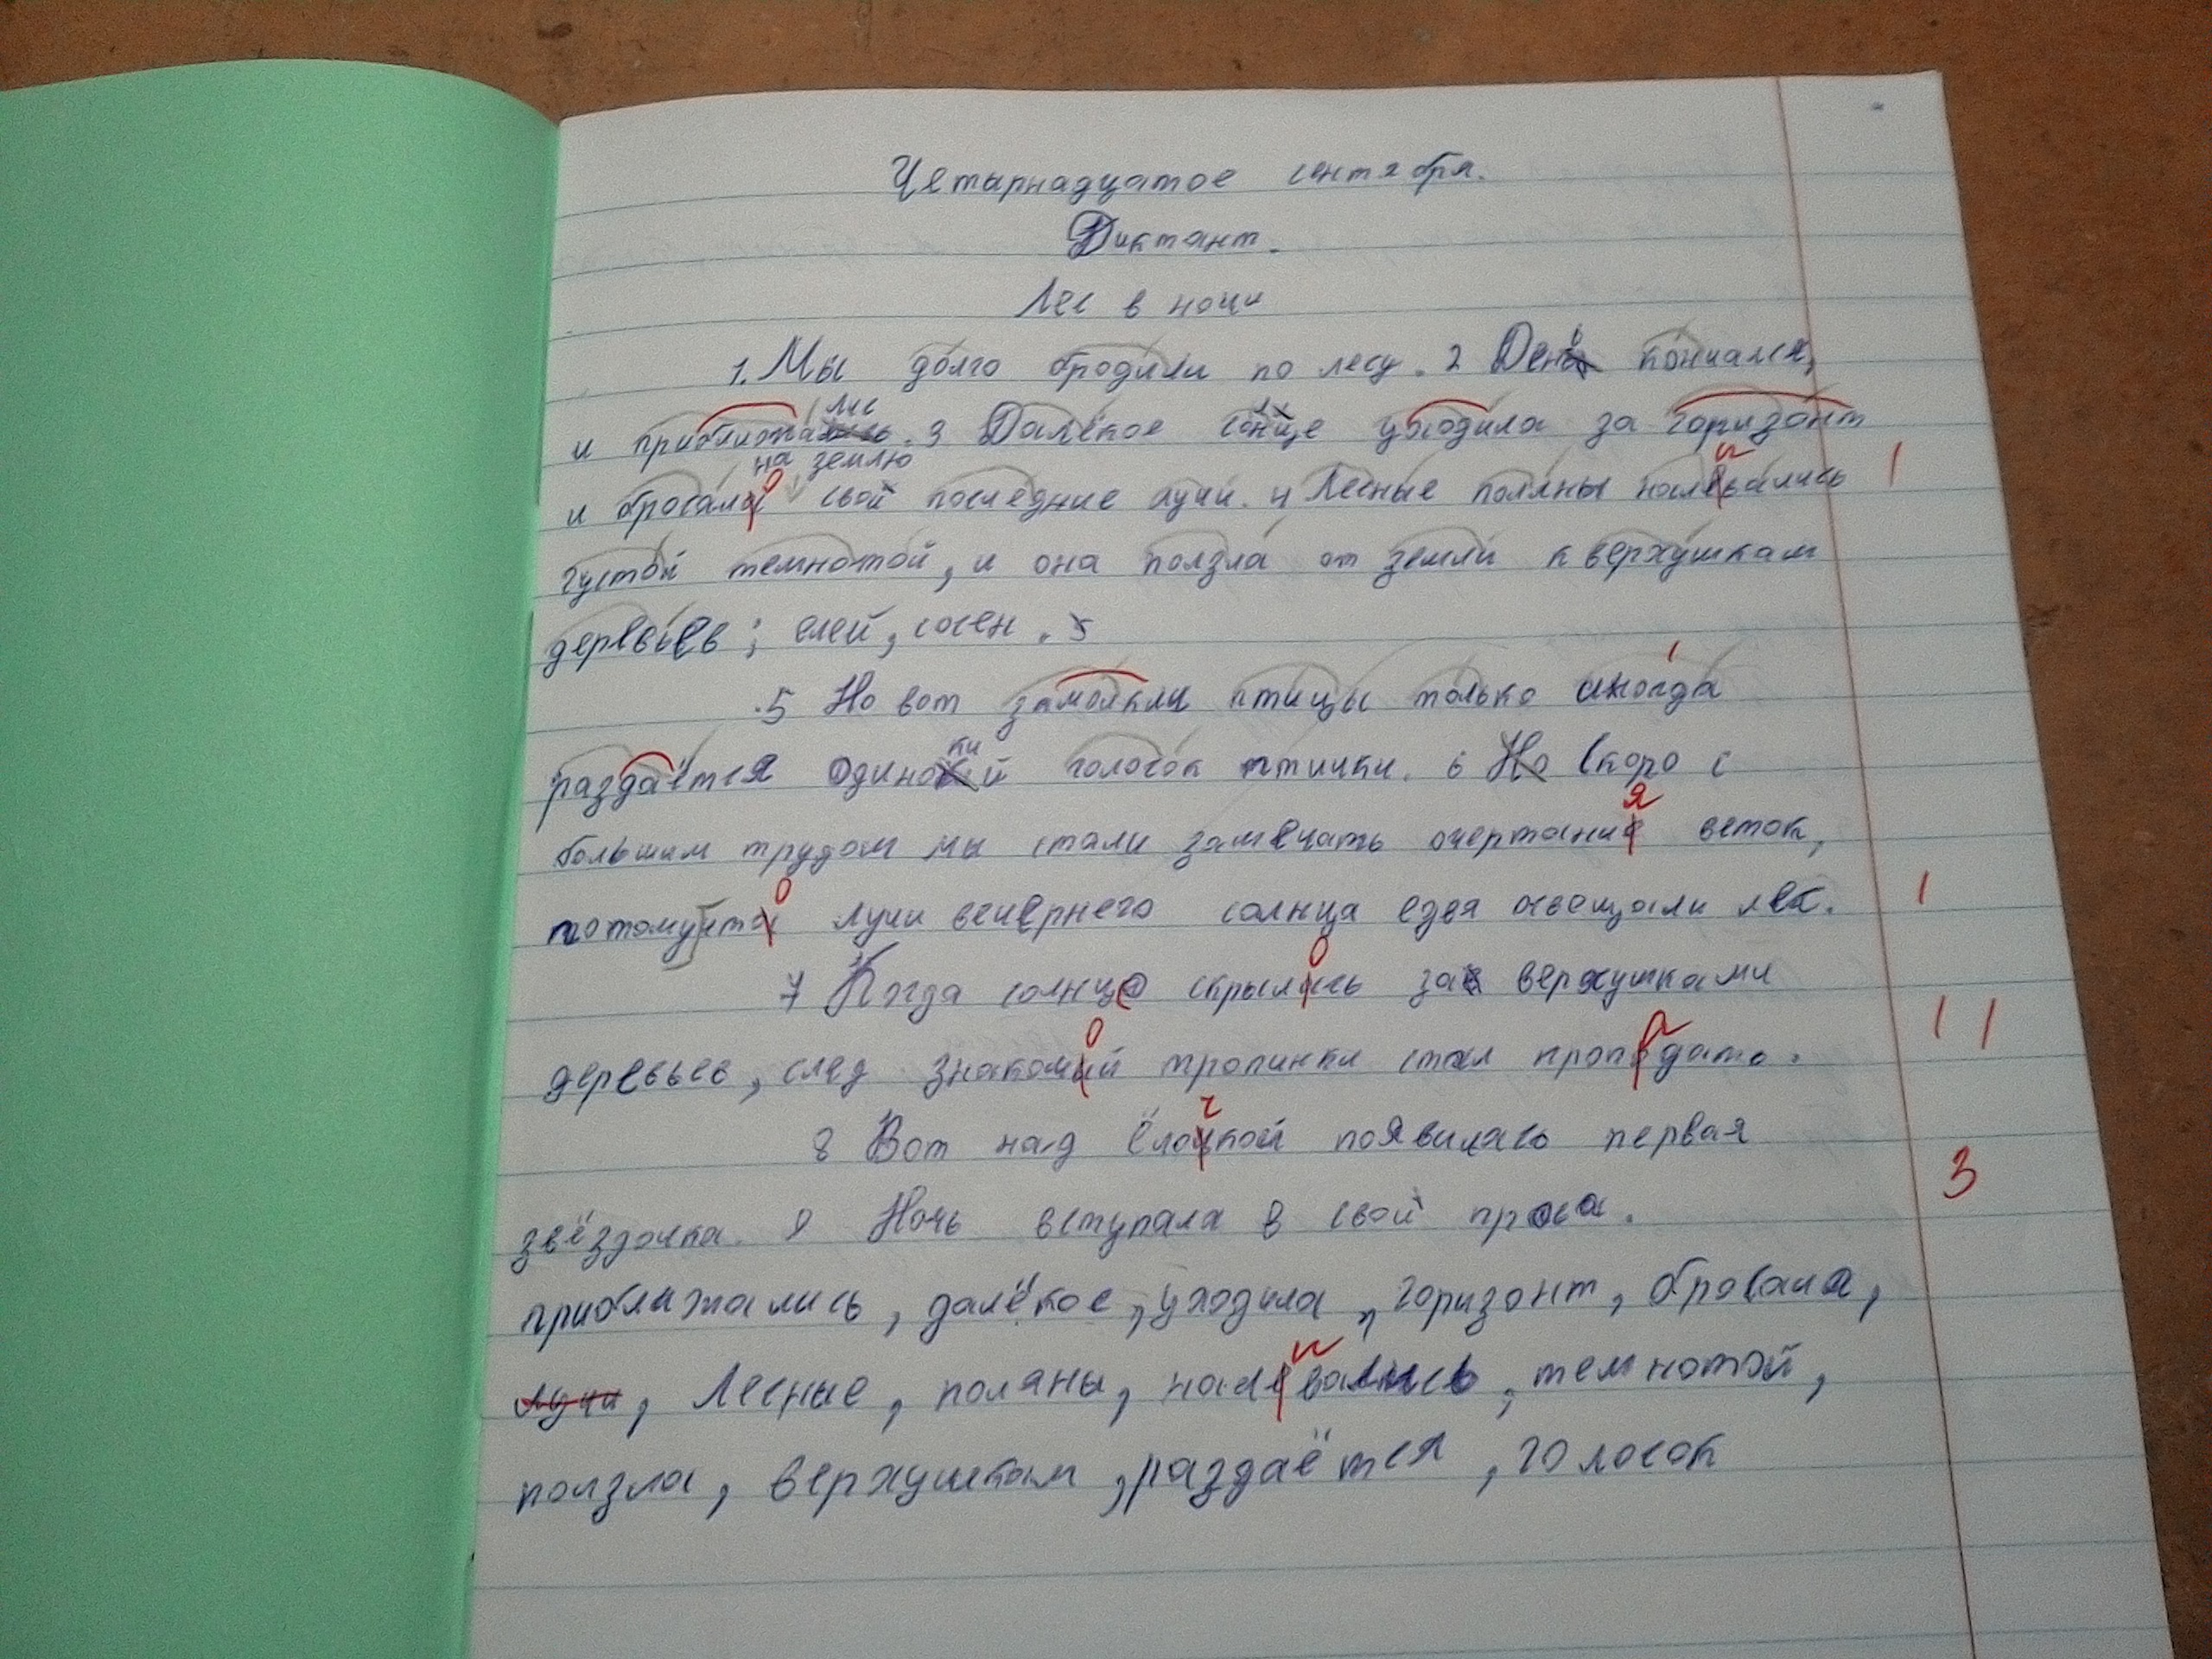 Четырнадцатое сентября.
Диктант.
Лес в ночи
1. Мы долго бродили по лесу. 2 День кончался,
и приближались. 3 Далёкое солнце уходила за горизонт
и бросала на землю свой последние лучи. 4 Лесные поляны налевались 1
густой темнотой, и она ползла от земли к верхушкам
деревьев; елей, сосен. 5
.5 Но вот замолкли птицы только иногда
раздаётся одинокий голосок птички. 6 Но Скоро с
большим трудом мы стали замечать очертание веток,
потомучта лучи вечернего солнца едва освещали лес. 1
7 Когда солнце скрылась за верхушками
деревьев, след знакомий тропинки стал проподать. 1 1
8 Вот над ёлочкой появилась первая
3
звёздочка. 9 Ночь вступала в свой права.
приближались, далёкое, уходила, горизонт, бросала,
лучи, Лесные, поляны, налевались, темнотой,
ползла, верхушкам, раздаётся, голосок